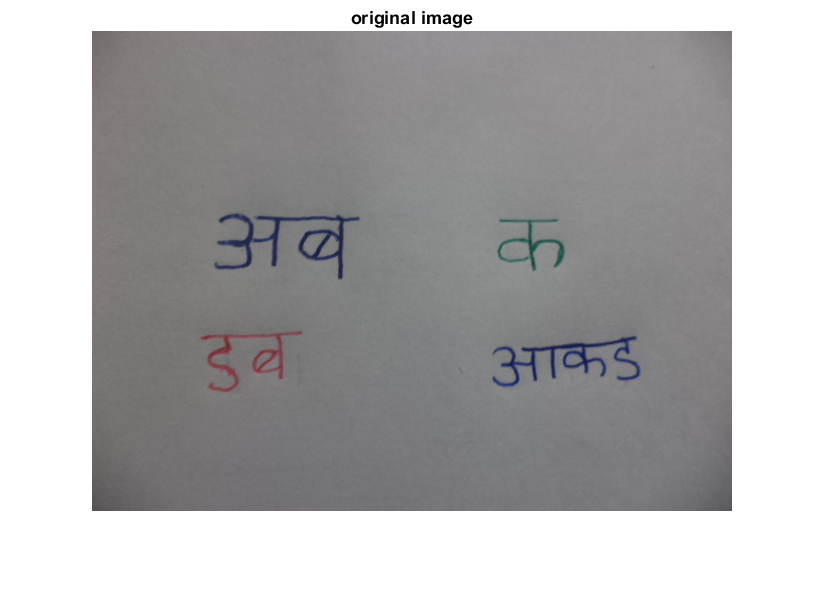 original image
अब क
डुब आकड